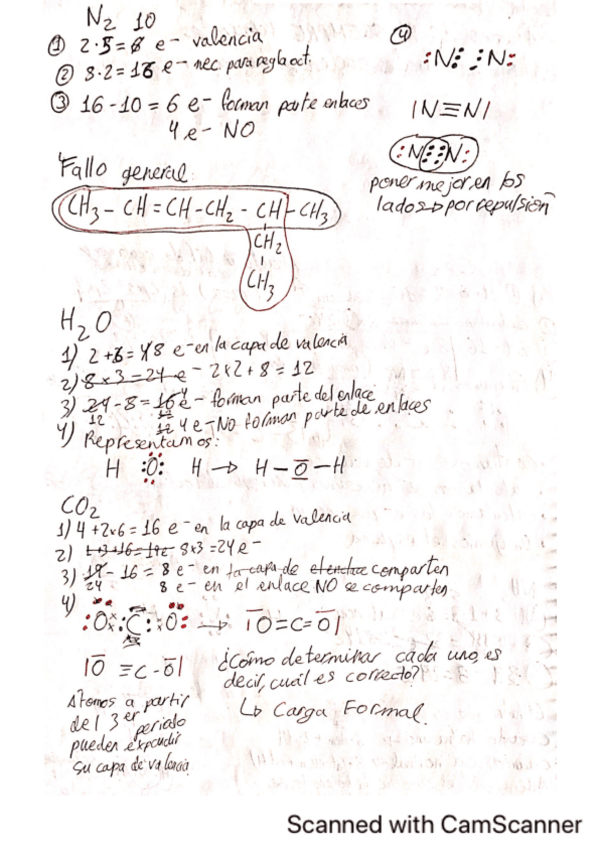 N₂ 10
① 2·5=8 e- valencia
② 8·2=16 e- nec para regla oct.
③ 16-10 = 6 e- forman parte enlaces
4 e- NO
④
:N: :N:
|N≡N|
:N:::N:
poner mejor en los
lados → por repulsión
Fallo general:
CH₃ - CH = CH - CH₂ - CH - CH₃
CH₂
CH₃
H₂O
1) 2+6=8 e- en la capa de valencia
2) 8x3=24 e- 2x2+8=12
3) 24-8=16 e- forman parte del enlace
12 12 4 e- No forman parte de enlaces
4) Representamos:
H :O: H → H-O-H
CO₂
1) 4+2x6=16 e- en la capa de valencia
2) 8x3=24 e-
3) 19-16=8 e- en la capa de comparten
24 8 e- en el enlace NO se comparten
4)
:O::C::O: → |O=C=O|
|O≡C-O|
¿Cómo determinar cada uno, es
decir, cuál es correcto?
↳ Carga Formal.
Átomos a partir
del 3er periodo
pueden expandir
su capa de valencia
Scanned with CamScanner